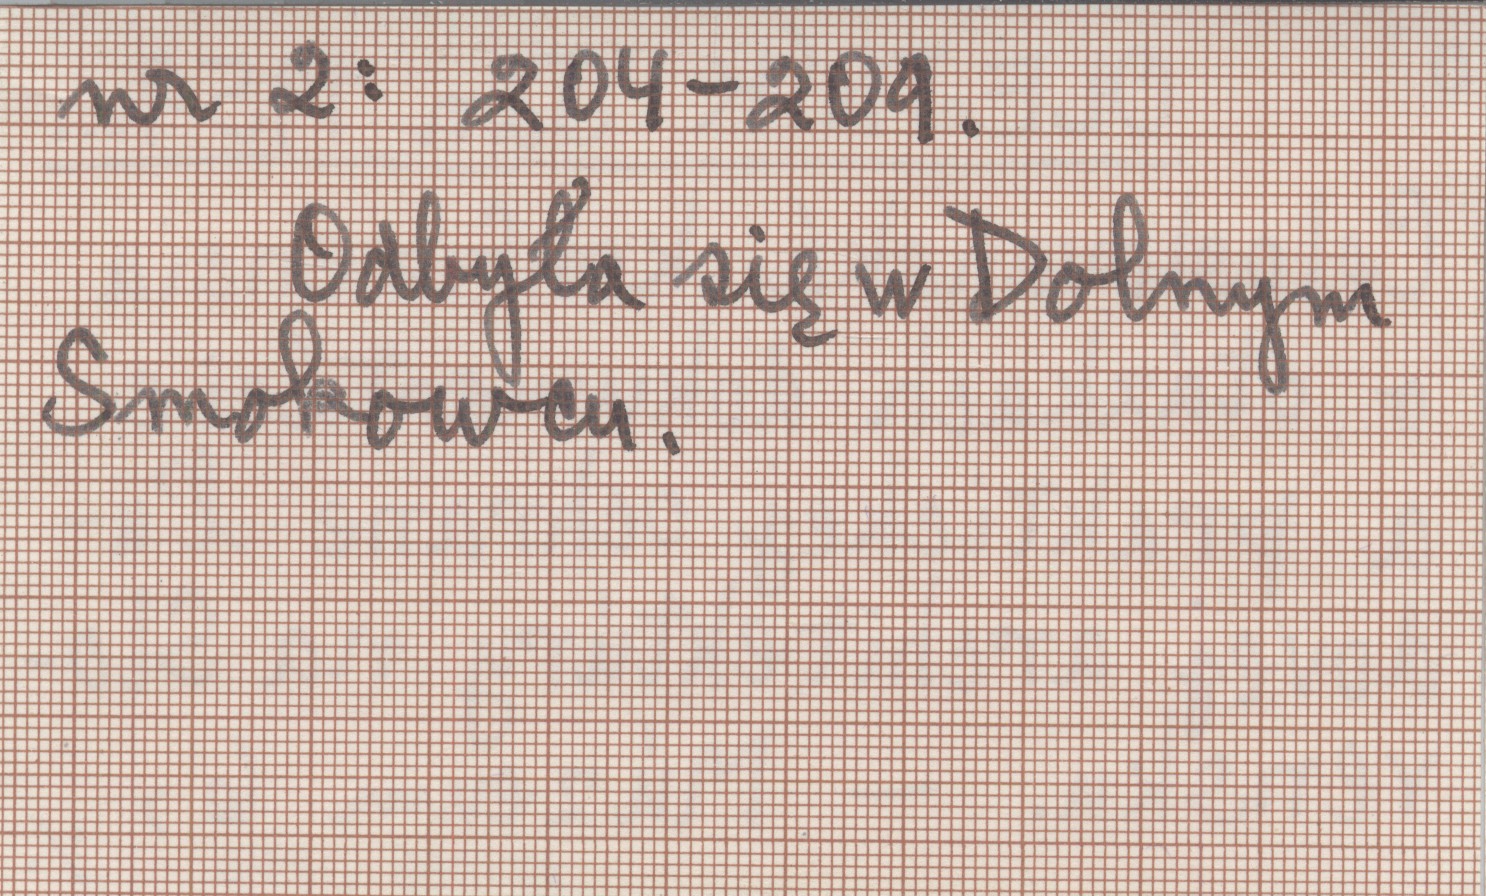 nr 2: 204-209.
Odbyła się w Dolnym
Smokowcu.